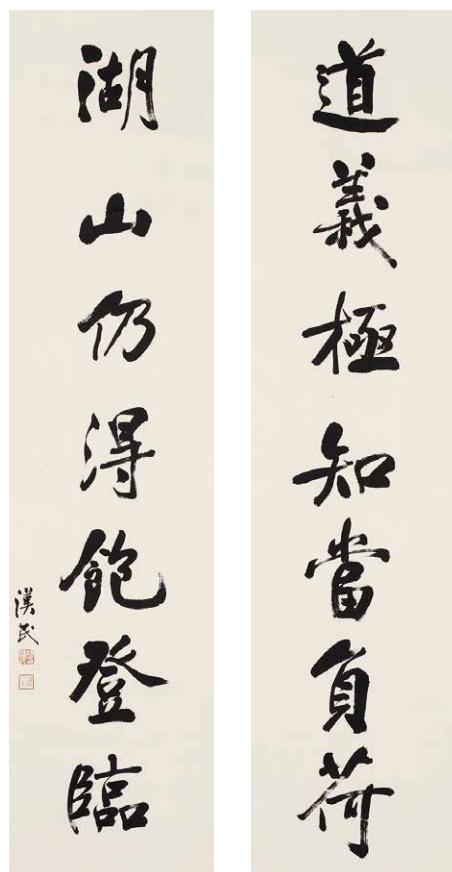 道義極知當負荷
湖山仍得飽登臨
漢民